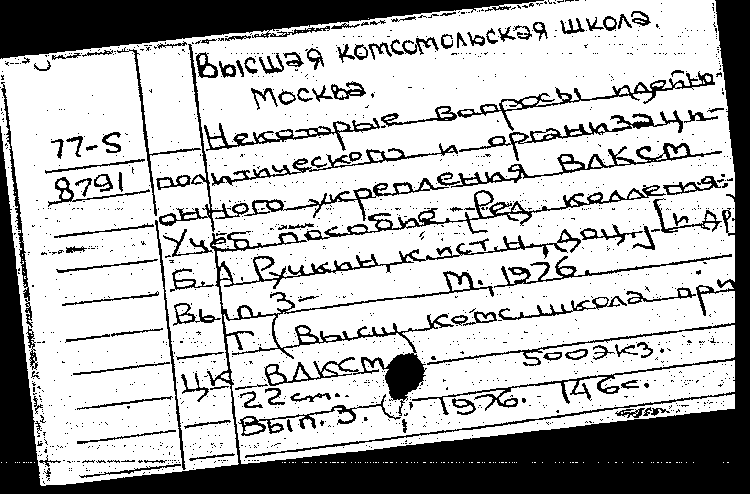 Высшая комсомольская школа.
Москва.
77-5
8791
Некоторые вопросы идейно-
политического и организаци-
онного укрепления ВЛКСМ
Учеб. пособие. [Ред. коллегия:
Б.А. Ручкин, к.ист.н., доц., [и др
Вып. 3-
М., 1976.
Т. (Высш. комс. школа при
ЦК ВЛКСМ).
500экз.
22см.
Вып. 3. 1976. 146с.